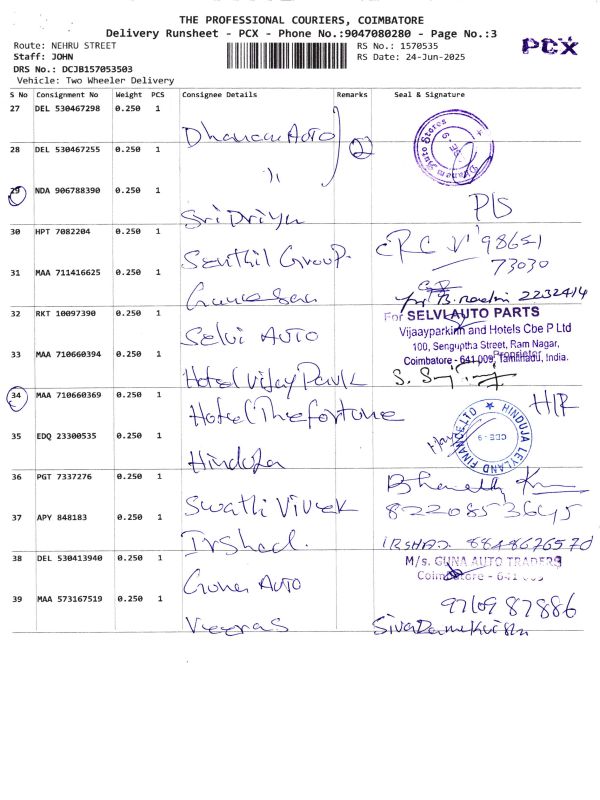 THE PROFESSIONAL COURIERS, COIMBATORE
Delivery Runsheet - PCX - Phone No.:9047080280 - Page No.:3
Route: NEHRU STREET
RS No.: 1570535
PCX
Staff: JOHN
RS Date: 24-Jun-2025
DRS No.: DCJB157053503
Vehicle: Two Wheeler Delivery
S No Consignment No Weight PCS Consignee Details Remarks Seal & Signature
27 DEL 530467298 0.250 1
Auto 2
28 DEL 530467255 0.250 1
"
29 NDA 906788390 0.250 1
Sri Priya
30 HPT 7082204 0.250 1
Senthil Group. 98651
73030
31 MAA 711416625 0.250 1
2232414
32 RKT 10097390 0.250 1
For SELVI AUTO PARTS
Selvi AUTO
Vijaayparkinn and Hotels Cbe P Ltd
100, Senguptha Street, Ram Nagar,
Coimbatore - 641 009, Tamilnadu, India.
Proprietor
33 MAA 710660394 0.250 1
Hotel Vijay Park
34 MAA 710660369 0.250 1
Hotel The fortune
HINDUJA LEYLAND FINANCE LTD
CBE-9
35 EDQ 23300535 0.250 1
Hinduja
36 PGT 7337276 0.250 1
Swathi Vivek
8220853645
37 APY 848183 0.250 1
Irshad.
IRSHAD 8848676570
38 DEL 530413940 0.250 1
M/s. GUNA AUTO TRADERS
Coimbatore - 641 009
Guna AUTO
39 MAA 573167519 0.250 1
97109 87886